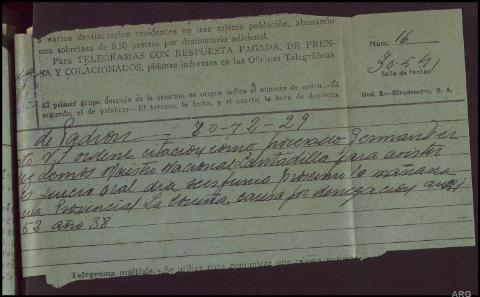 a varios destinatarios residentes en una misma población, abonando
una sobretasa de 0,50 pesetas por destinatario adicional.
Para TELEGRAMAS CON RESPUESTA PAGADA, DE PREN-
SA Y COLACIONADOS, pídanse informes en las Oficinas Telegráficas
El primer grupo después de la estación de origen indica el número de orden.—El
segundo, el de palabras.—El tercero, la fecha, y el cuarto, la hora de depósito.
Núm. 16
30-5-41
Sello de fechas
Mod. 2.—Rivadeneyra, S. A.
de Padron = 30-12-29
ordene citación como procesado
Maestro Nacional Cantadilla para asistir
juicio oral dia seis junio proximo 10 mañana
Provincial La Coruña causa por denegación
53 año 38
Telegrama múltiple.—Se utiliza para comunicar una misma noticia
ARG